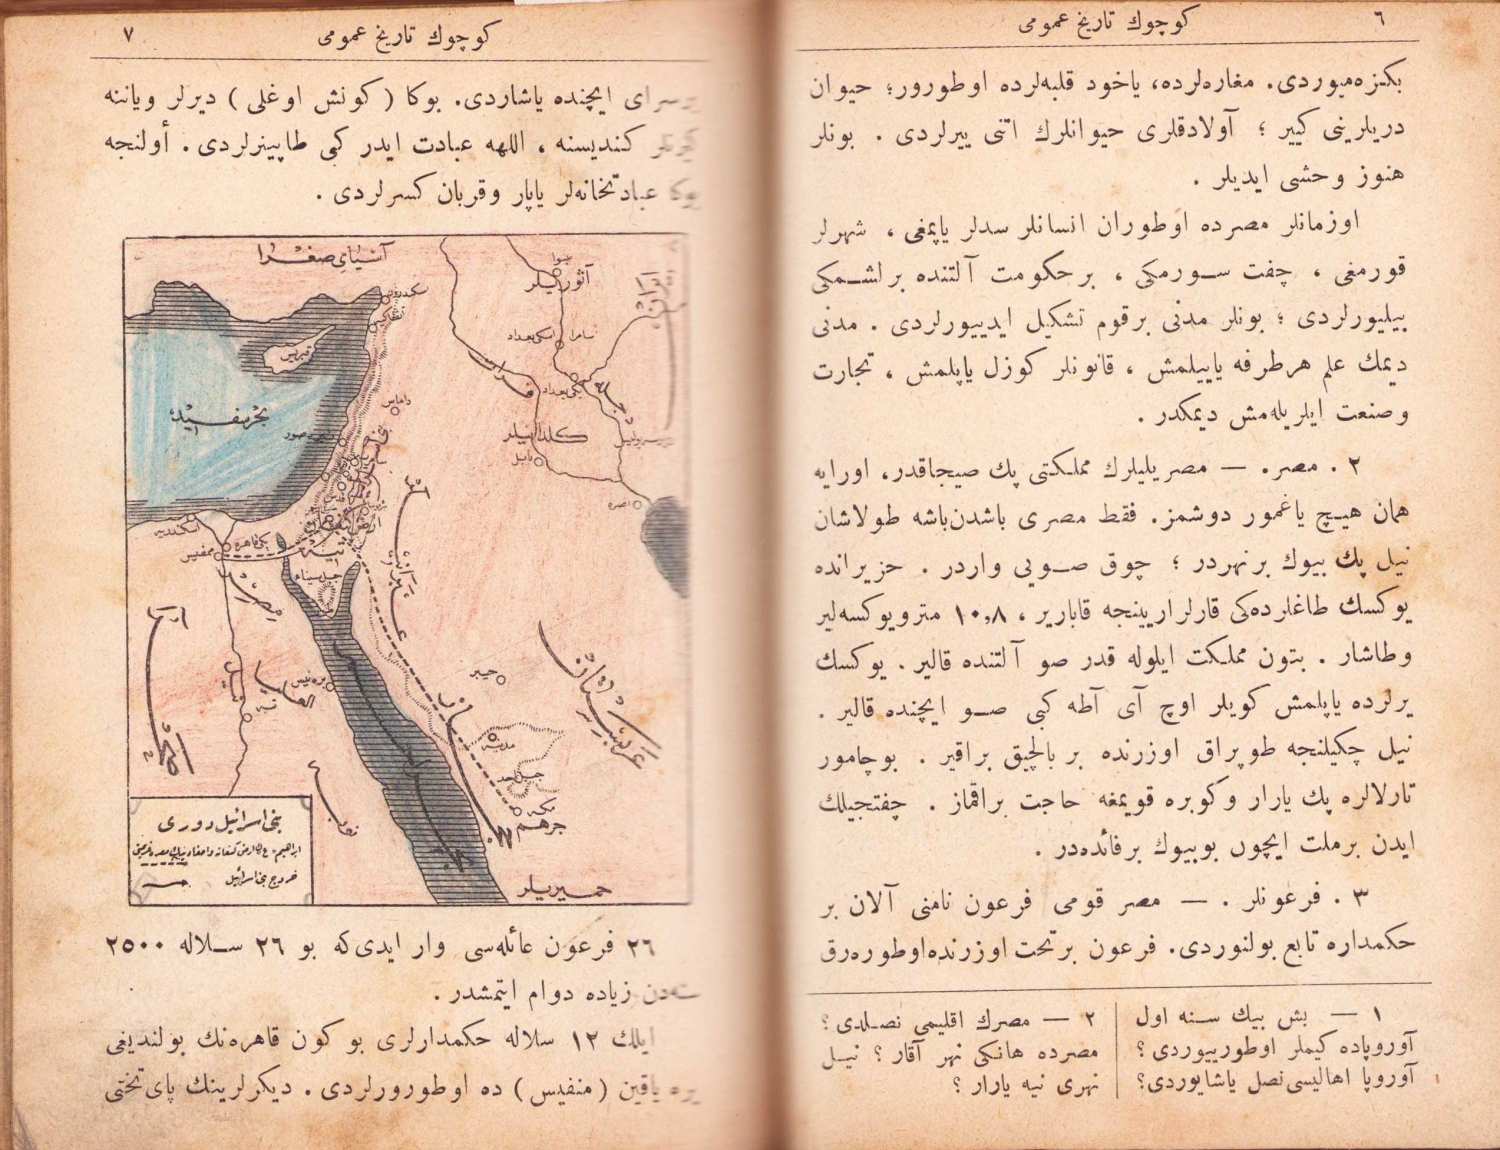 ٦
كوچوك تاريخ عمومى
بكزه‌ميوردى. مغاره‌لرده، ياخود قلبه‌لرده اوطورور؛ حيوان
دريلرينى كيير ؛ آولادقلرى حيوانلرك اتنى ييرلردى . بونلر
هنوز وحشى ايديلر .
اوزمانلر مصرده اوطوران انسانلر سدلر ياپمغى ، شهرلر
قورمغى ، چفت سورمكى ، برحكومت آلتنده برلشمكى
بيليورلردى ؛ بونلر مدنى برقوم تشكيل ايدييورلردى . مدنى
ديمك علم هرطرفه ياييلمش ، قانونلر كوزل ياپلمش ، تجارت
وصنعت ايلريله‌مش ديمكدر .
٢ . مصر. — مصريليلرك مملكتى پك صيجاقدر، اورايه
همان هيچ ياغمور دوشمز. فقط مصرى باشدن‌باشه طولاشان
نيل پك بيوك برنهردر ؛ چوق صويى واردر . حزيرانده
يوكسك طاغلرده‌كى قارلراريينجه قابارير ، ١٠,٨ مترويوكسه‌لير
وطاشار . بتون مملكت ايلوله قدر صو آلتنده قالير . يوكسك
يرلرده ياپلمش كويلر اوچ آى آطه كبى صو ايچنده قالير .
نيل چكيلنجه طوپراق اوزرنده بر بالچيق براقير . بوچامور
تارلالره پك يارار وكوبره قويمغه حاجت براقماز . چفتجيلك
ايدن برملت ايچون بوبيوك برفائده‌در .
٣ . فرعونلر . — مصر قومى فرعون نامنى آلان بر
حكمداره تابع بولنوردى. فرعون برتخت اوزرنده‌اوطوره‌رق
١ — بش بيك سنه اول
آوروپاده كيملر اوطورييوردى ؟
آوروپا اهاليسى‌نصل ياشايوردى؟
٢ — مصرك اقليمى نصلدى ؟
مصرده هانكى نهر آقار ؟ نيل
نهرى نيه يارار ؟
كوچوك تاريخ عمومى
٧
برسراى ايچنده ياشاردى. بوكا ( كونش اوغلى ) ديرلر وياننه
كنديسنه ، اللهه عبادت ايدر كبى طاپينرلردى . أولنجه
بوكا عبادتخانه‌لر ياپار وقربان كسرلردى .
آسياى صغرا
نينوا
آثوريلر
ايران
اسكندرون
انطاكيه
سامرا
اسكى‌بغداد
قبريس
فرات
دجله
يكى‌بغداد
داماس
بحر سفيد
صور
كلدانيلر
بابل
بصره
اسكندريه
يكى‌قاهره
ممفيس
تيه
جبل سيناء
مصر
نيل
العليا
برنيس
صحراء
خيبر
عربستان
مدينه
جبل احد
مكه
جرهم
نوبه
حميريلر
بنى اسرائيل دورى
خروج بنى‌اسرائيل
٢٦ فرعون عائله‌سى وار ايدى‌كه بو ٢٦ سلاله ٢٥٠٠
سنه‌دن زياده دوام ايتمشدر .
ايلك ١٢ سلاله حكمدارلرى بو كون قاهره‌نك بولنديغى
يره ياقين ( منفيس ) ده اوطورورلردى . ديكرلرينك پاى‌تختى